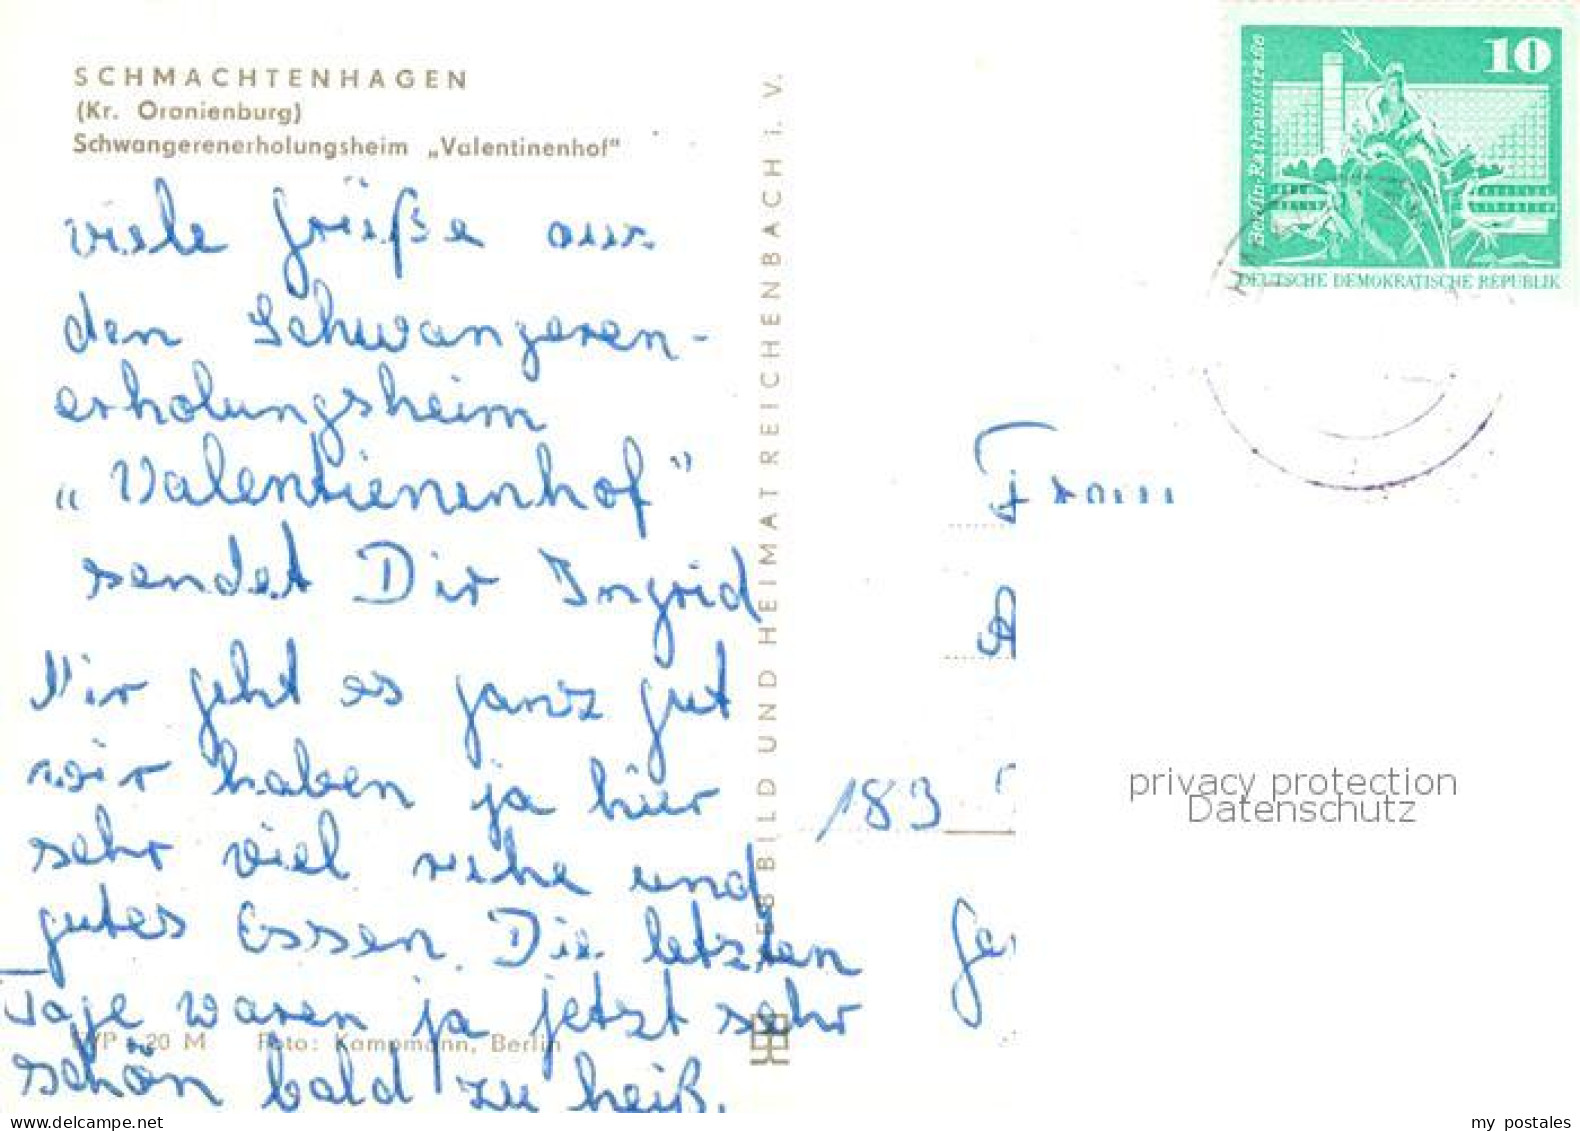 SCHMACHTENHAGEN
(Kr. Oranienburg)
Schwangerenerholungsheim „Valentinenhof“
viele Grüße aus
den Schwangeren-
erholungsheim
„Valentienenhof"
sendet Dir Ingrid
Mir geht es ganz gut
wir haben ja hier
sehr viel ruhe und
gutes Essen. Die letzten
Tage waren ja jetzt sehr
schön bald zu heiß.
20 M Foto: Kampmann, Berlin
BILD UND HEIMAT REICHENBACH i. V.
10
Berlin-Rathausstraße
DEUTSCHE DEMOKRATISCHE REPUBLIK
Frau
183
privacy protection
Datenschutz
oldthing.de
my postales